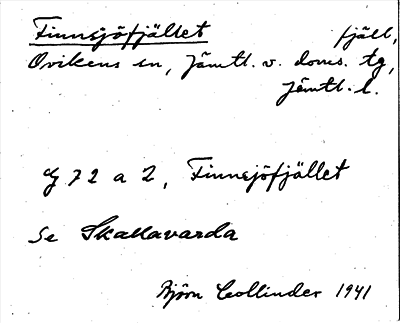 Finnsjöfjället fjäll,
Ovikens sn, Jämtl. v. doms. tg,
Jämtl. l.
G 72 a 2, Finnsjöfjället
Se Skallavarda
Björn Collinder 1941